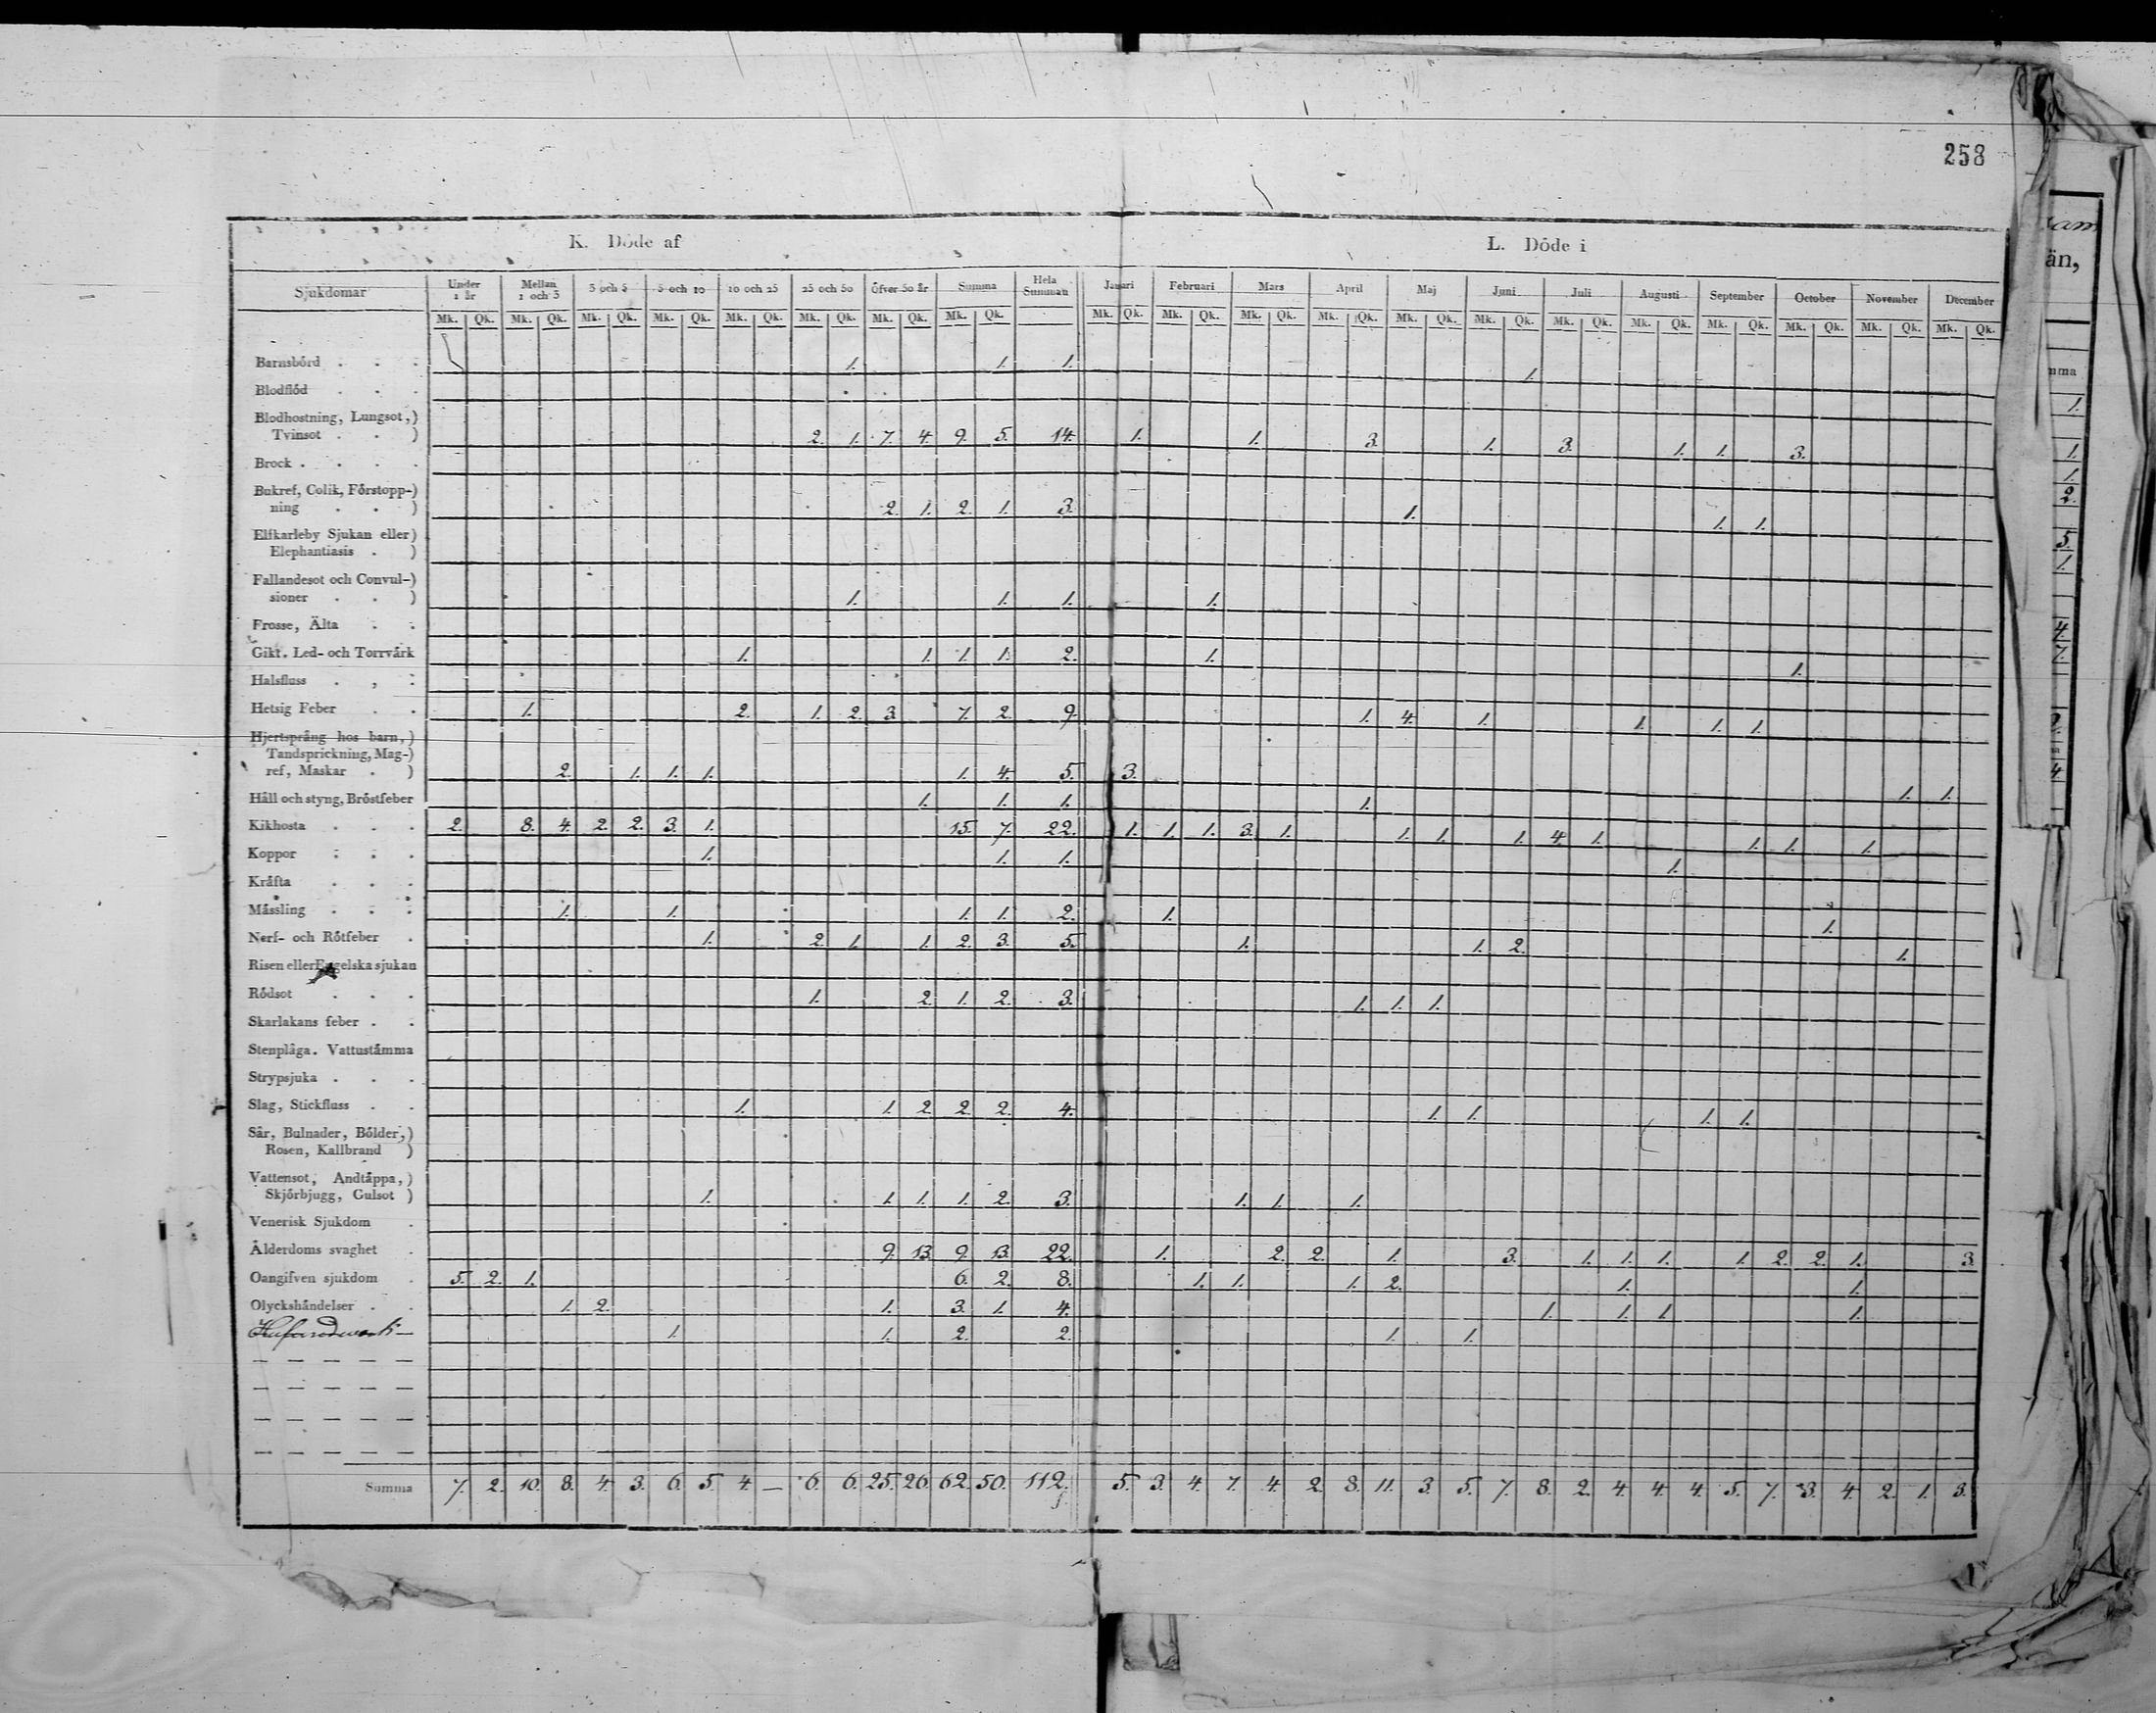 258
K. Döde af L. Döde i
Sjukdomar Under 1 år Mellan 1 och 3 3 och 5 5 och 10 10 och 25 25 och 50 öfver 50 år Summa Hela Summan Januari Februari Mars April Maj Juni Juli Augusti September October November December
Mk. Qk. Mk. Qk. Mk. Qk. Mk. Qk. Mk. Qk. Mk. Qk. Mk. Qk. Mk. Qk. Mk. Qk. Mk. Qk. Mk. Qk. Mk. Qk. Mk. Qk. Mk. Qk. Mk. Qk. Mk. Qk. Mk. Qk. Mk. Qk. Mk. Qk. Mk. Qk.
Barnsbörd . . . 1. 1. 1. 1.
Blodflöd . . .
Blodhostning, Lungsot,)
Tvinsot . . ) 2. 1. 7. 4. 9. 5. 14. 1. 1. 3. 1. 3. 1. 1. 3.
Brock . . . .
Bukref, Colik, Förstopp-)
ning . . ) 2. 1. 2. 1. 3. 1. 1. 1.
Elfkarleby Sjukan eller)
Elephantiasis . )
Fallandesot och Convul-)
sioner . . ) 1. 1. 1. 1.
Frosse, Älta . .
Gikt. Led- och Torrvärk 1. 1. 1. 1. 2. 1. 1.
Halsfluss . , .
Hetsig Feber . . 1. 2. 1. 2. 3. 7. 2. 9. 1. 4. 1. 1. 1. 1.
Hjertsprång hos barn,)
Tandsprickning, Mag-)
ref, Maskar . ) 2. 1. 1. 1. 1. 4. 5. 3. 1. 1.
Håll och styng, Bröstfeber 1. 1. 1. 1.
Kikhosta . . . 2. 8. 4. 2. 2. 3. 1. 15. 7. 22. 1. 1. 1. 3. 1. 1. 1. 1. 4. 1. 1. 1. 1.
Koppor . . . 1. 1. 1. 1.
Kräfta . . .
Mässling . . . 1. 1. 1. 1. 2. 1. 1.
Nerf- och Rötfeber . 1. 2. 1. 1. 2. 3. 5. 1. 1. 2. 1.
Risen eller Engelska sjukan
Rödsot . . . 1. 2. 1. 2. 3. 1. 1. 1.
Skarlakans feber . .
Stenplåga. Vattustämma
Strypsjuka . . .
Slag, Stickfluss . . 1. 1. 2. 2. 2. 4. 1. 1. 1. 1.
Sår, Bulnader, Bölder,)
Rosen, Kallbrand )
Vattensot, Andtäppa,)
Skjörbjugg, Gulsot ) 1. 1. 1. 1. 2. 3. 1. 1. 1.
Venerisk Sjukdom .
Ålderdoms svaghet . 9. 13. 9. 13. 22. 1. 2. 2. 1. 3. 1. 1. 1. 1. 2. 2. 1. 3.
Oangifven sjukdom . 5. 2. 1. 6. 2. 8. 1. 1. 1. 2. 1. 1.
Olyckshändelser . . 1. 2. 1. 3. 1. 4. 1. 1. 1. 1.
1. 1. 2. 2. 1. 1.
Summa 7. 2. 10. 8. 4. 3. 6. 5. 4. — 6. 6. 25. 26. 62. 50. 112. 5. 3. 4. 7. 4. 2. 8. 11. 3. 5. 7. 8. 2. 4. 4. 4. 5. 7. 3. 4. 2. 1. 3.
än,
1.
1.
1.
2.
5.
1.
4.
7.
4